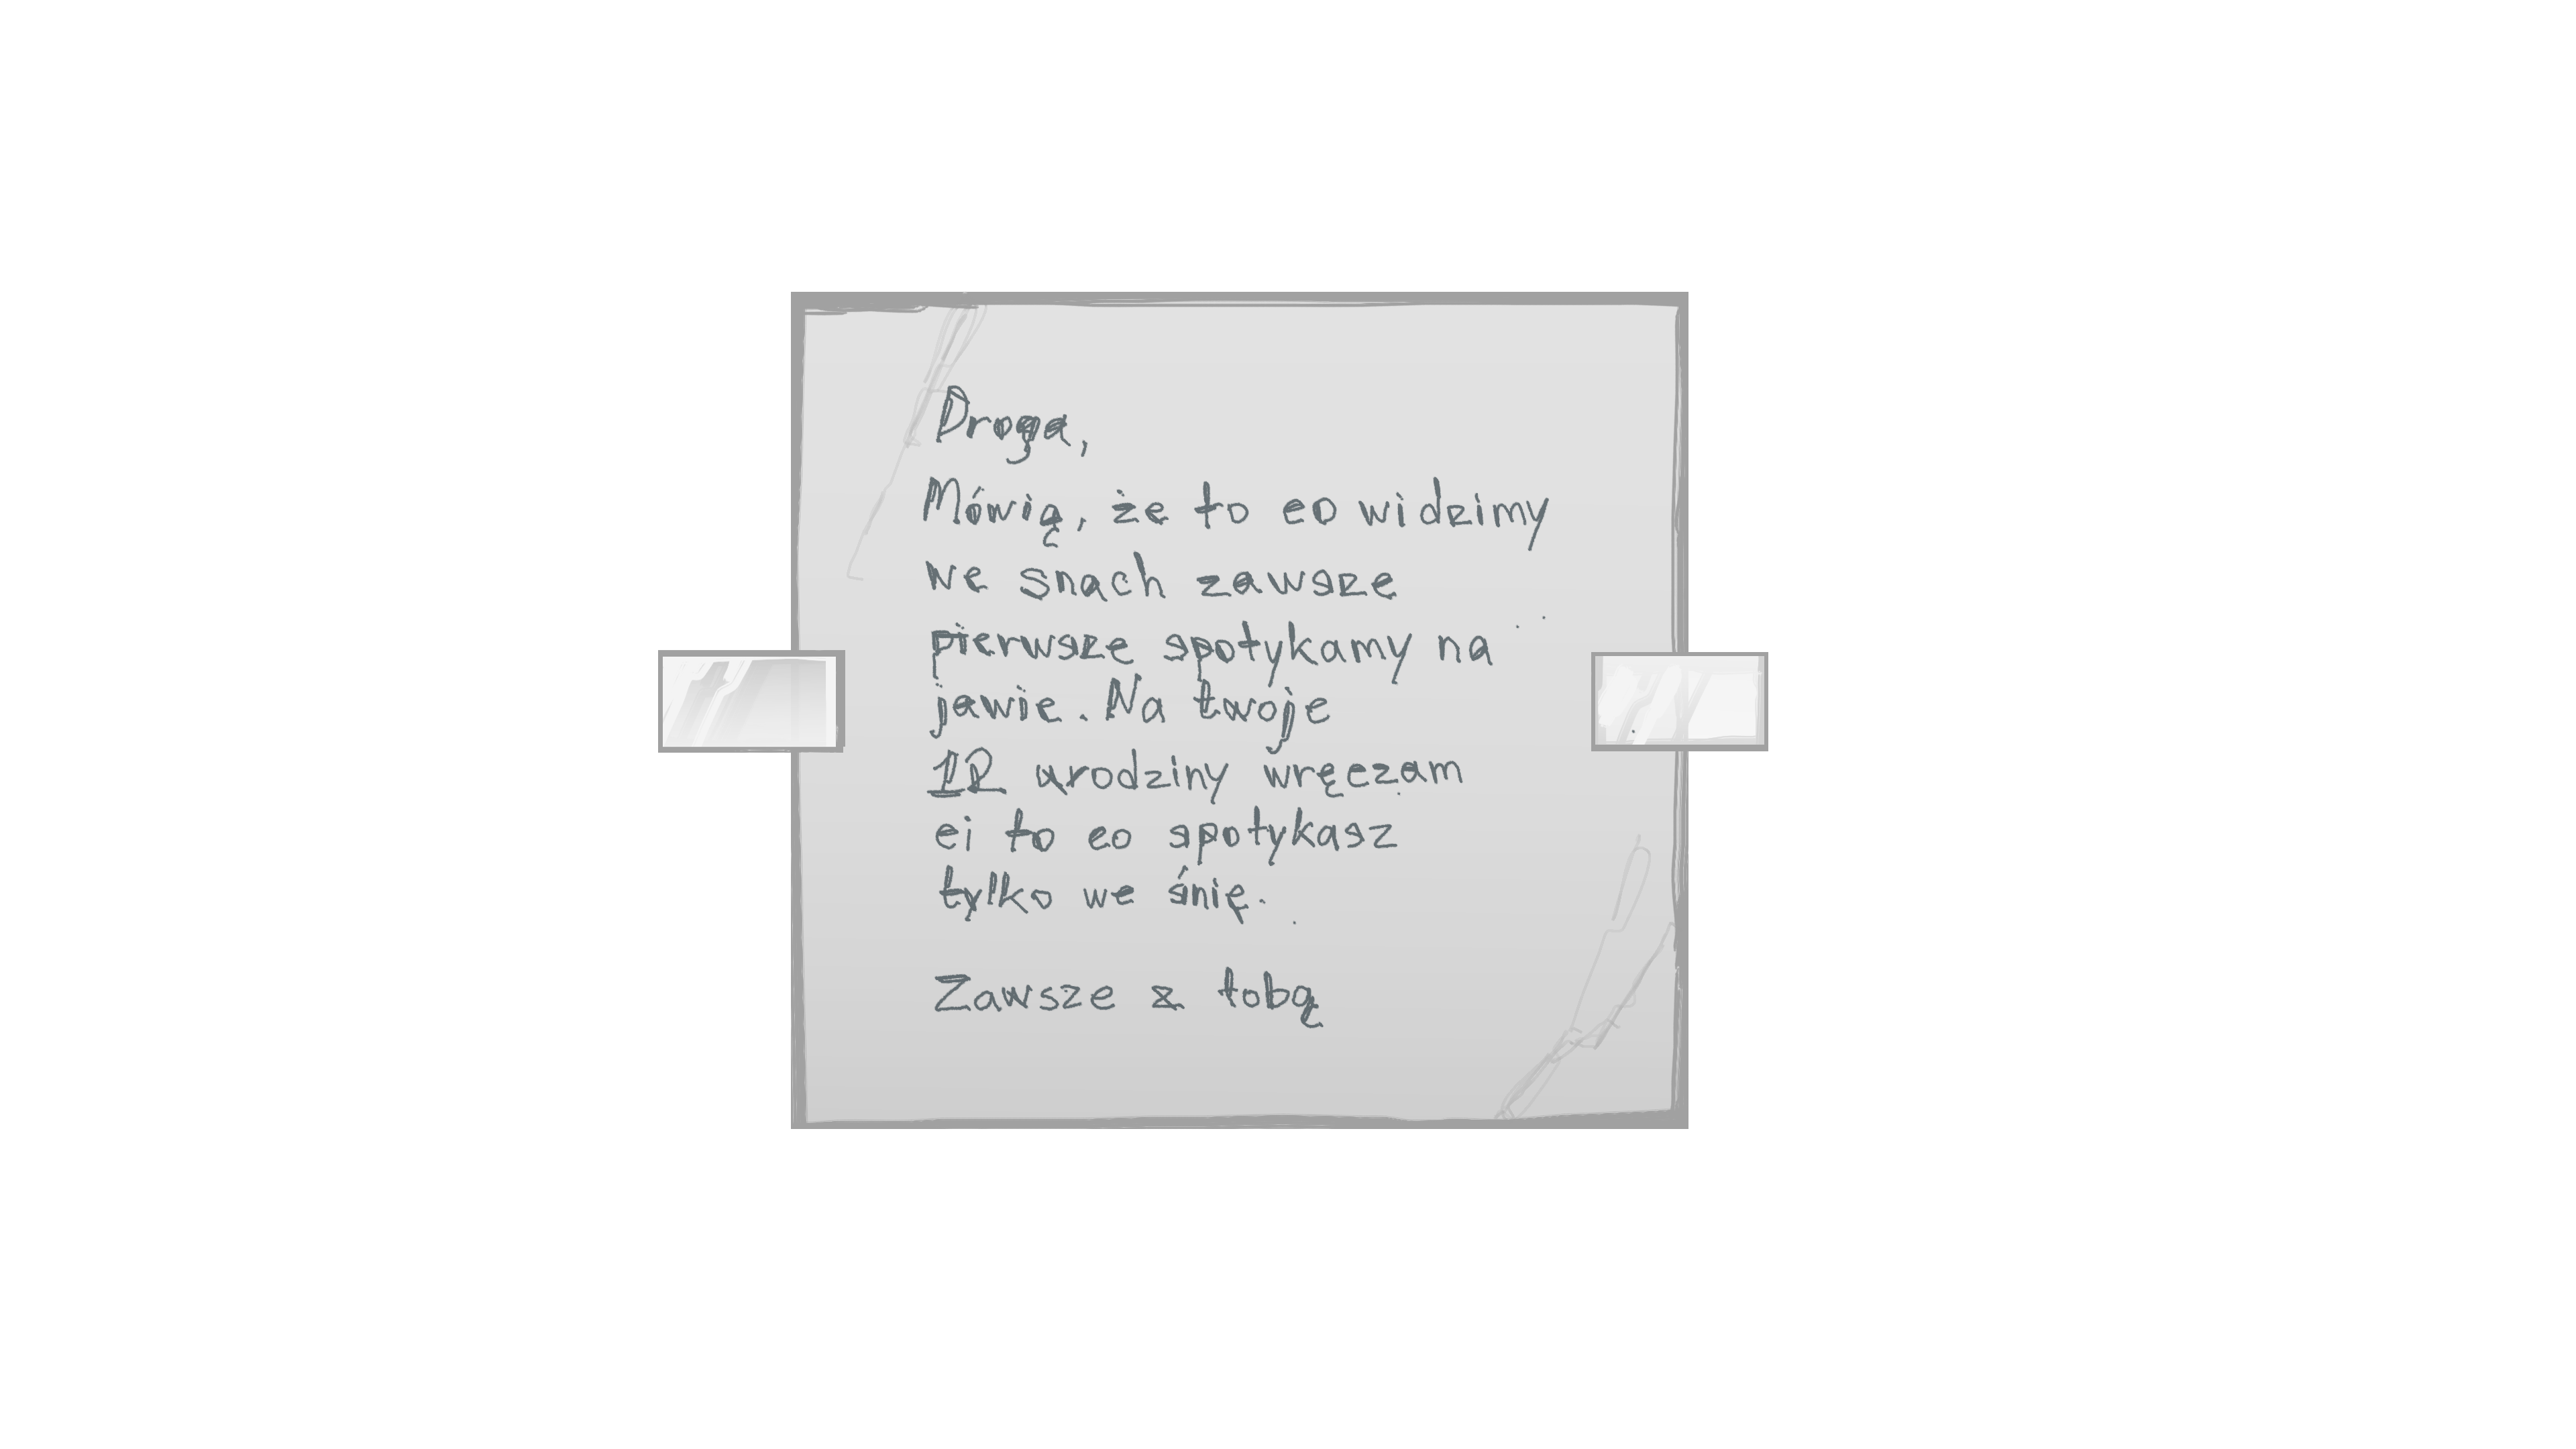 Droga,
Mówią, że to co widzimy
we snach zawsze
pierwsze spotykamy na
jawie. Na twoje
12 urodziny wręczam
ci to co spotykasz
tylko we śnię.
Zawsze z tobą